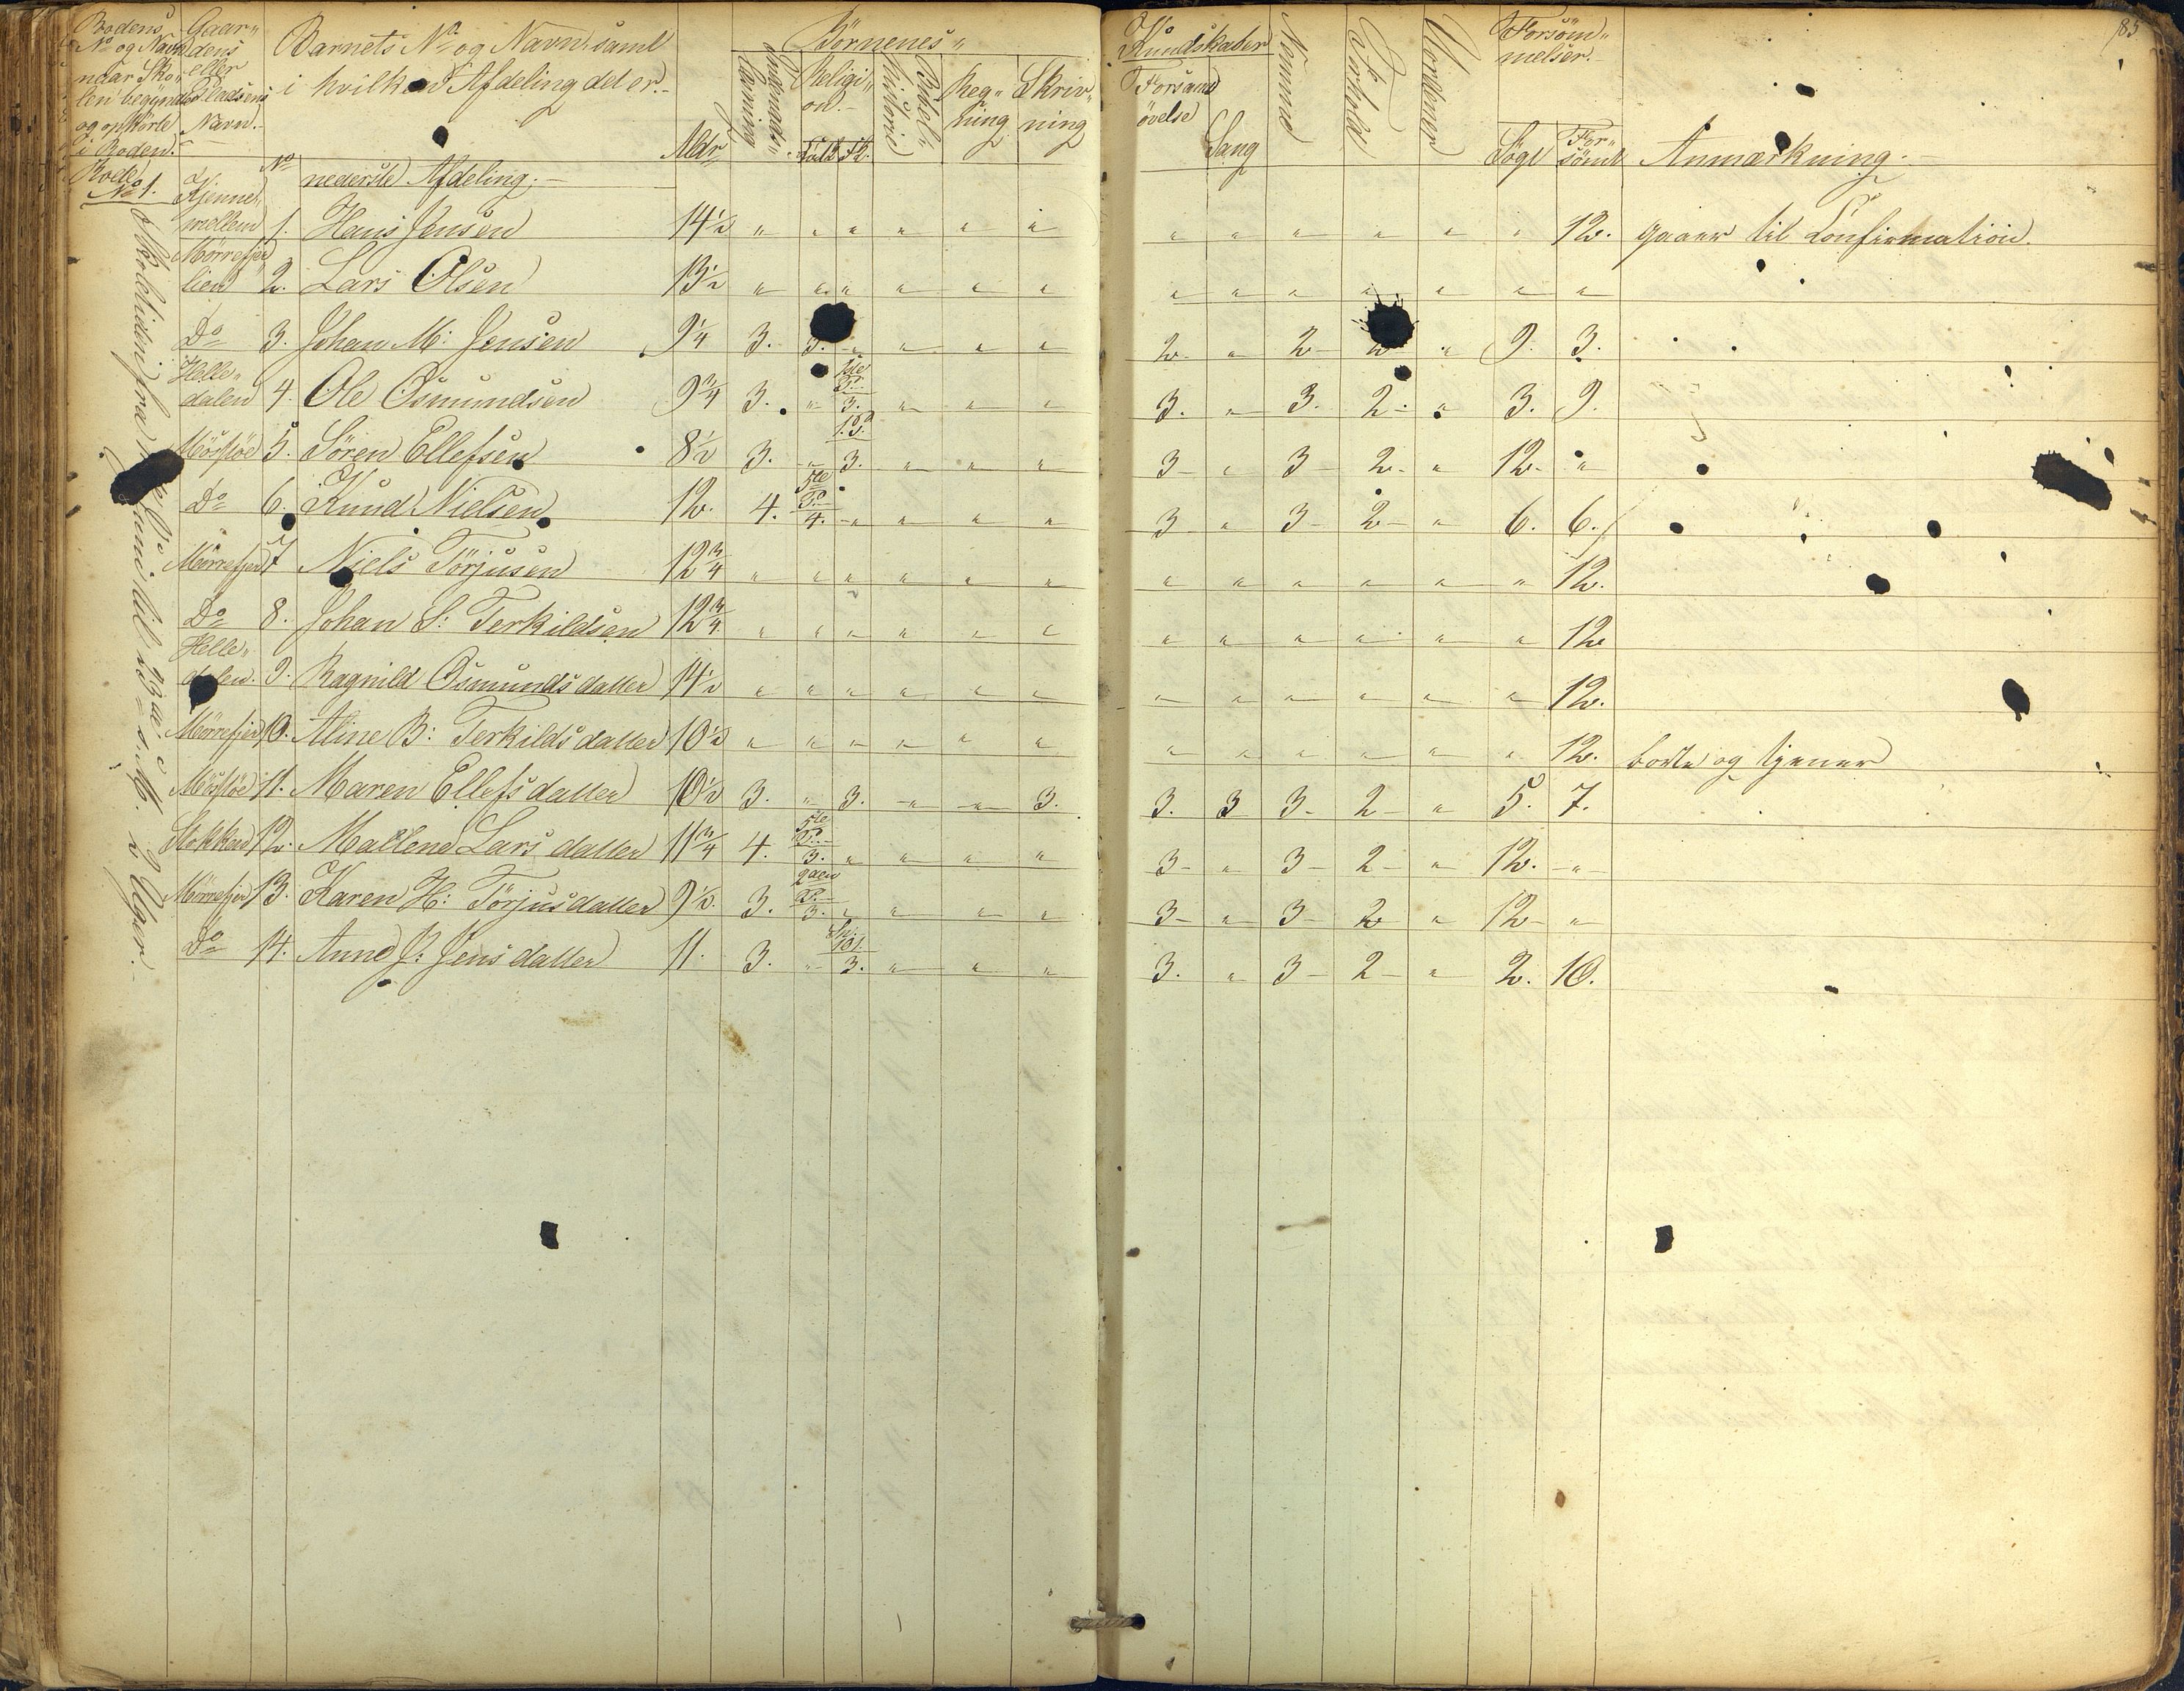 85
Rodens No og Navn naar Skolen begyndte og ophörte i Roden.
Gaardens eller Pladsens Navn.
Barnets No og Navn samt
i hvilken Afdeling det er.
Aldr
Börnenes
Indenads Læsning
Religion
Historie
Bibel
Regning
Skrivning
Kundskaber
Forstand övelse
Sang
Nemme
Forhold
Forsömmelser.
Sögt
Forsömt
Anmærkning.
Rode No 1.
No nederste Afdeling.
Kjennemellem 1. Hans Jensen 14½ " " " " " " " " " " " " 12. gaaer til Confirmation.
Mörrefjerlien 2. Lars Olsen 13½ " " " " " " " " " " " " "
Do 3. Johan M: Jensen 9¼ 3. 3. " " " " 2 " 2 2 " 9. 3.
Helledalen 4. Ole Osmundsen 9¾ 3. " 3. " " " 3. " 3. 2 " 3. 9.
Mörfjöe 5. Sören Ellefsen 8½ 3. " 3. " " " 3 " 3 2 " 12 "
Do 6. Knud Nielsen 12. 4. 5te P. 4. " " " " 3 " 3 2 " 6. 6.
Mörrefjer 7 Niels Törjusen 12¾ " " " " " " " " " " " " 12.
Do 8. Johan S: Terkildsen 12¾ " " " " " " " " " " " " 12
Helledalen. 9. Ragnild Osmundsdatter 14½ " " " " " " " " " " " " 12.
Mörrefjer 10. Aline B: Terkildsdatter 10½ " " " " " " " " " " " " 12. borte og tjener
Mörfjöe 11. Maren Ellefsdatter 10½ 3. " 3. " " 3. 3. 3 3 2 " 5. 7.
Stokken 12. Mallene Larsdatter 11¾ 4. 5te P. 3. " " " " 3 " 3 2 " 12. "
Mörrefjer 13. Karen H: Törjusdatter 9½ 3. P. 3. " " " " 3 " 3 2 " 12 "
Do 14. Anne J: Jensdatter 11. 3. " 101 3. " " " 3. " 3 2 " 2. 10.
Skoletiden fra til Uger.